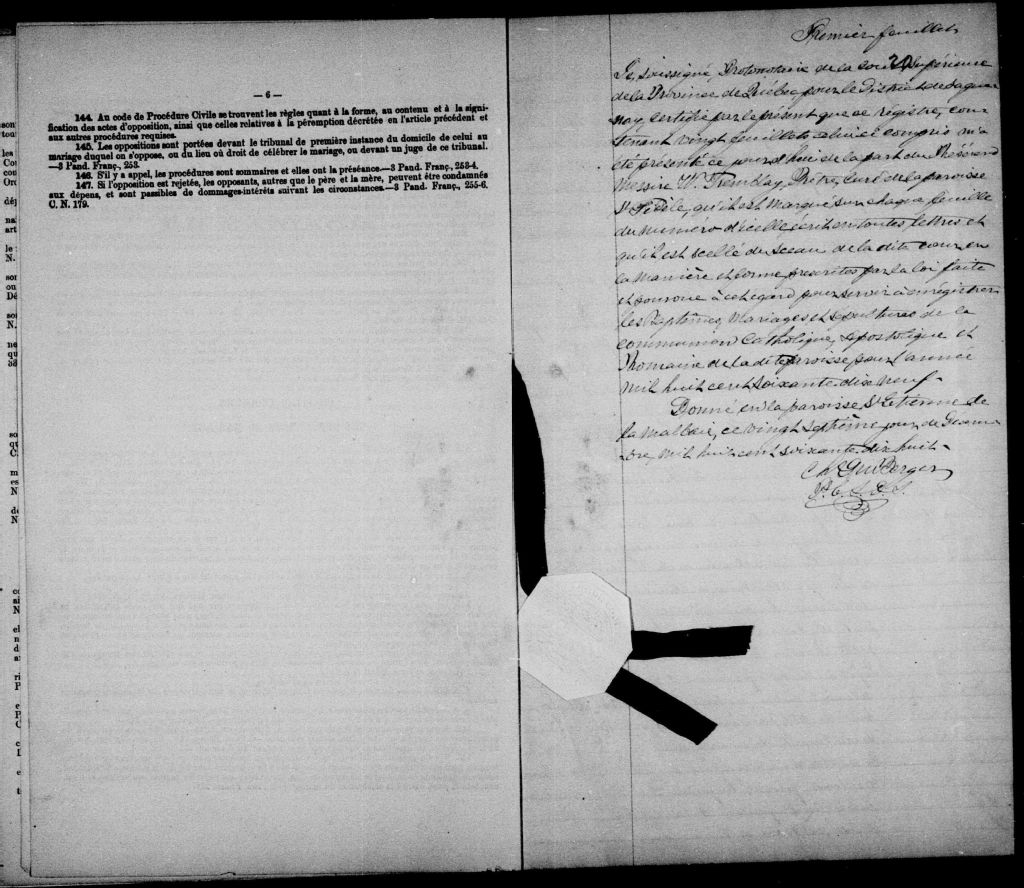 — 6 —
144. Au code de Procédure Civile se trouvent les règles quant à la forme, au contenu et à la signi-
fication des actes d'opposition, ainsi que celles relatives à la péremption décrétée en l'article précédent et
aux autres procédures requises.
145. Les oppositions sont portées devant le tribunal de première instance du domicile de celui au
mariage duquel on s'oppose, ou du lieu où droit de célébrer le mariage, ou devant un juge de ce tribunal.
—3 Pand. Franç., 253.
146. S'il y a appel, les procédures sont sommaires et elles ont la préséance.—3 Pand. Franç., 253-4.
147. Si l'opposition est rejetée, les opposants, autres que le père et la mère, peuvent être condamnés
aux dépens, et sont passibles de dommages-intérêts suivant les circonstances.—3 Pand. Franç., 255-6.
C. N. 179.
Premier feuillet
20
Je, soussigné Protonotaire de la cour Supérieure
de la Province de Québec pour le District de Sague-
nay, certifie par le présent que ce régistre, con-
tenant vingt feuillets celui ci compris m'a
été présenté ce jourd'hui de la part du Révérend
Messire W. Tremblay, Prêtre, curé de la paroisse
St Fidèle, qu'il est marqué sur chaque feuille
du numéro d'icelle, écrit en toutes lettres et
qu'il est scellé du sceau de la dite cour en
la manière et forme prescrites par la loi faite
et pourvue à cet égard pour servir à enrégistrer
les Baptêmes, Mariages et sépultures de la
communion Catholique, Apostolique et
Romaine de la dite paroisse pour l'année
mil huit cent soixante dix neuf.
Donné en la paroisse St Etienne de
la Malbaie, ce vingt septième jour de
mil huit cent soixante dix huit.